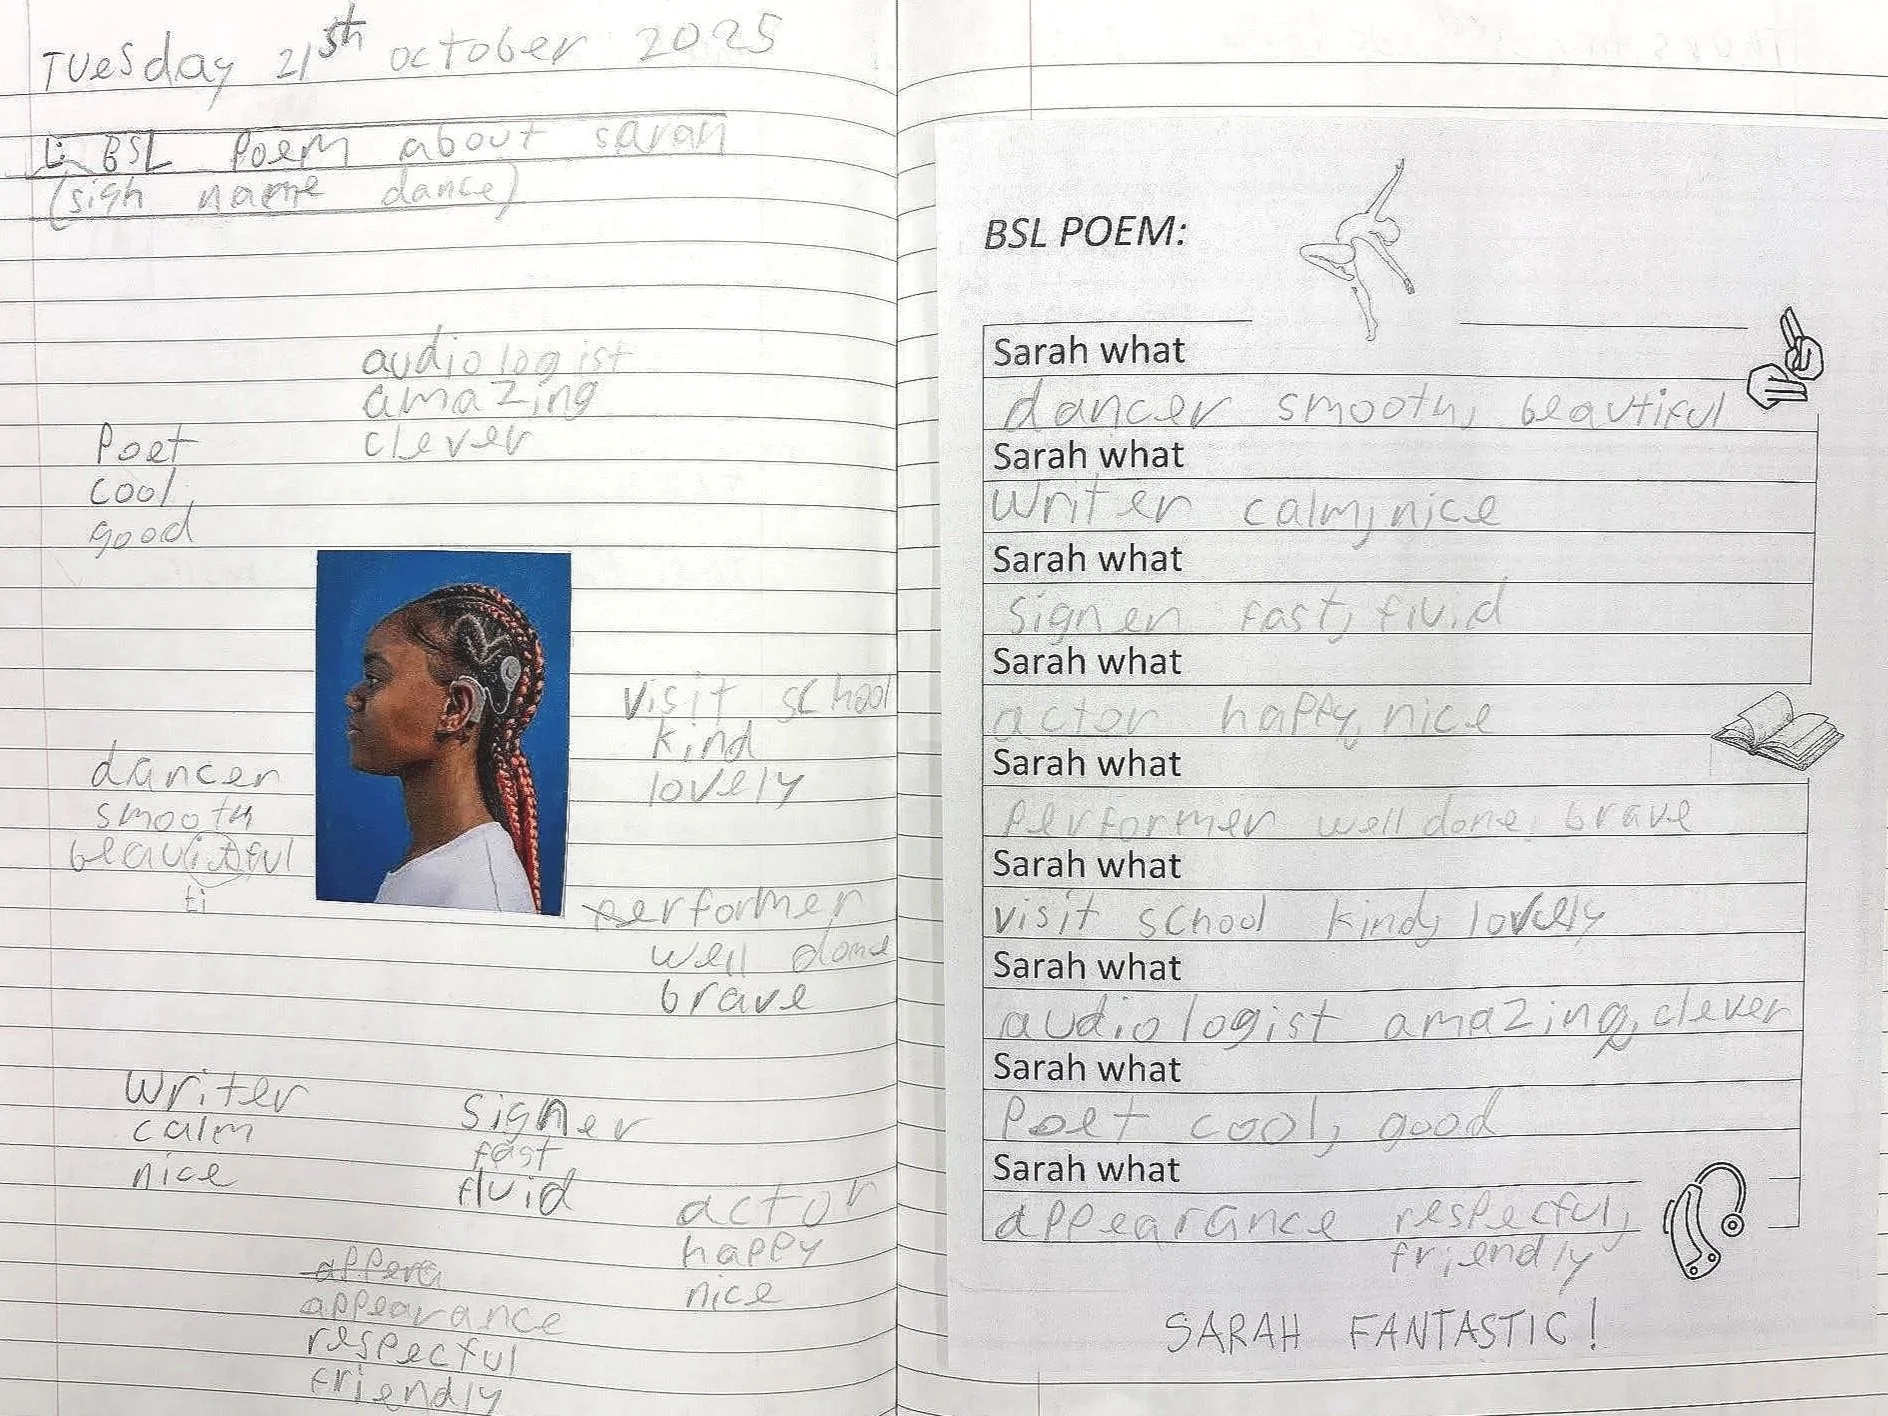 Tuesday 21sth october 2025
L: BSL Poem about sarah
(sign name dance)
audiologist
amazing
clever
Poet
cool
good
visit school
kind
lovely
dancer
smooth
beauitful
ti
performer
well done
brave
writer
calm
nice
signer
fast
fluid
actor
happy
nice
appera
appearance
respectful
friendly
BSL POEM:
Sarah what
dancer smooth, beautiful
Sarah what
writer calm, nice
Sarah what
signer fast, fluid
Sarah what
actor happy, nice
Sarah what
performer well done, brave
Sarah what
visit school kind, lovely
Sarah what
audiologist amazing, clever
Sarah what
Poet cool, good
Sarah what
appearance respectful,
friendly
SARAH FANTASTIC!